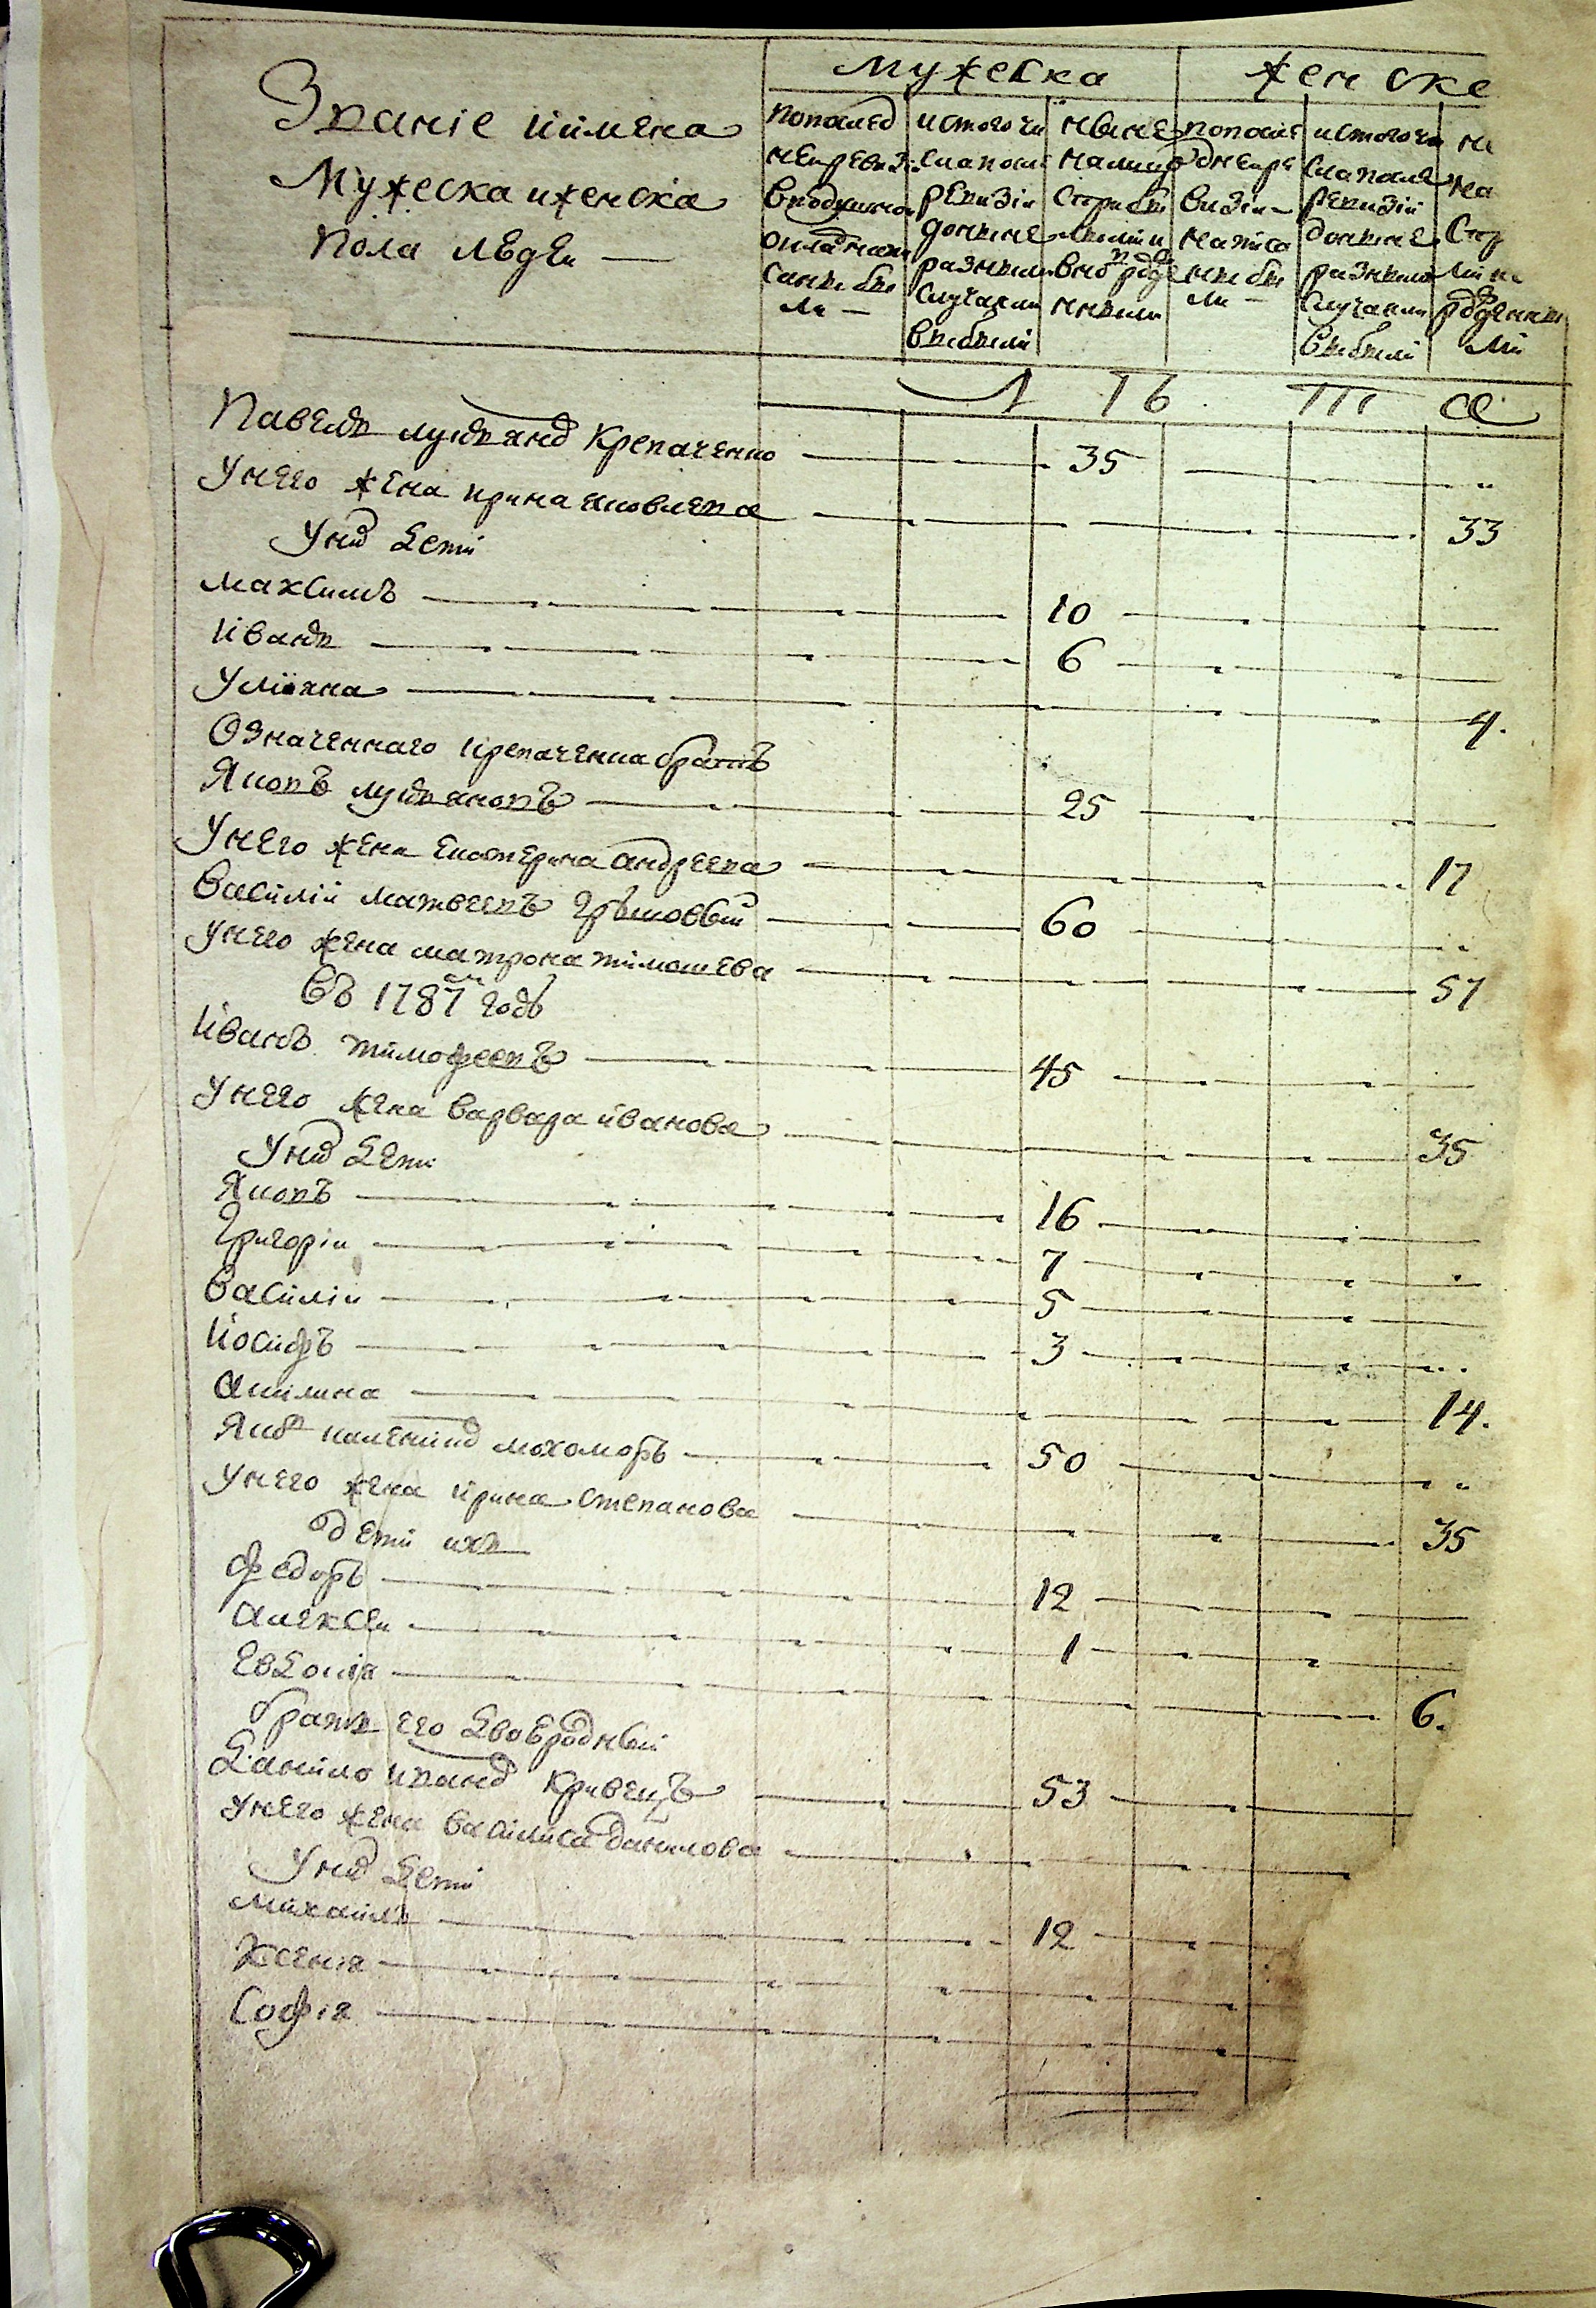 Званіе иимена
Мужеска иженска
пола людей —
Мужеска
Женске
попослед
ней ревиз
вподушном
окладе напи
саны бы
ли —
истого чи
сла после
ревизіи
доныне
разными
случаями
выбыли
ныне
налицо
старыбы
лыми и
вно рожде
нными
попосле
дней ре
визіи —
написа
ны бы
ли —
истого чи
сла после
ревизіи
доныне
разными
случаями
выбыли
не
на
стар
ми и
рожденны
ми
Павелъ лукъяновъ Крепаченко 35
Унего жена ирина яковлева 33
Уних дети
Максимъ 10
Иванъ 6
Улияна 4.
Означеннаго крепаченка братъ
Яковъ лукъяновъ 25
Унего жена Екатерина андреева 17
Василій Матвеевъ Грымовый 60
унего жена матрона тимошева 57
въ 1787м годѣ
Иванъ тимофеевъ 45
Унего жена варвара иванова 35
Уних дети
Яковъ 16
Григоріи 7
Василіи 5
Иосифъ 3
Акилина 14.
Яковъ калениковъ мохоморъ 50
Унего жена ирина степанова 35
дети ихъ
Федоръ 12
Алексеи 1
Евдокия 6.
братъ его двоюродный
Данило ивановъ Кривецъ 53
унего жена василиса данилова
Уних дети
Михаилъ 12
Ксения
Софія